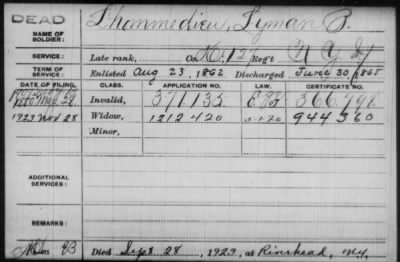 DEAD
NAME OF SOLDIER: Lhommedieu, Lyman P.
SERVICE: Late rank, Co. H, 127 Reg't N Y
TERM OF SERVICE: Enlisted Aug 23, 1862 Discharged June 30 1865
DATE OF FILING. CLASS. APPLICATION NO. LAW. CERTIFICATE NO.
Invalid, 371,135
1923 28 Widow, 1212420 944360
Minor,
ADDITIONAL SERVICES:
REMARKS:
Died Sept 28, 1923, at Riverhead, N.Y.